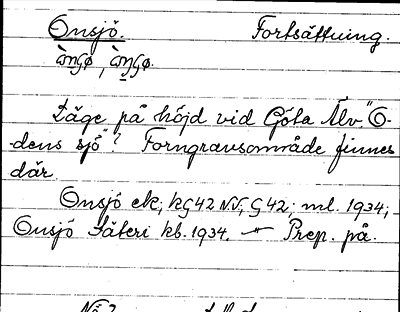 Onsjö. Fortsättning.
Läge på höjd vid Göta Älv. "O-
-dens sjö"? Forngravsområde finnes
där.
Onsjö ek; kG42 NV; G42; ml. 1934;
Onsjö Säteri kb. 1934. Prep. på.